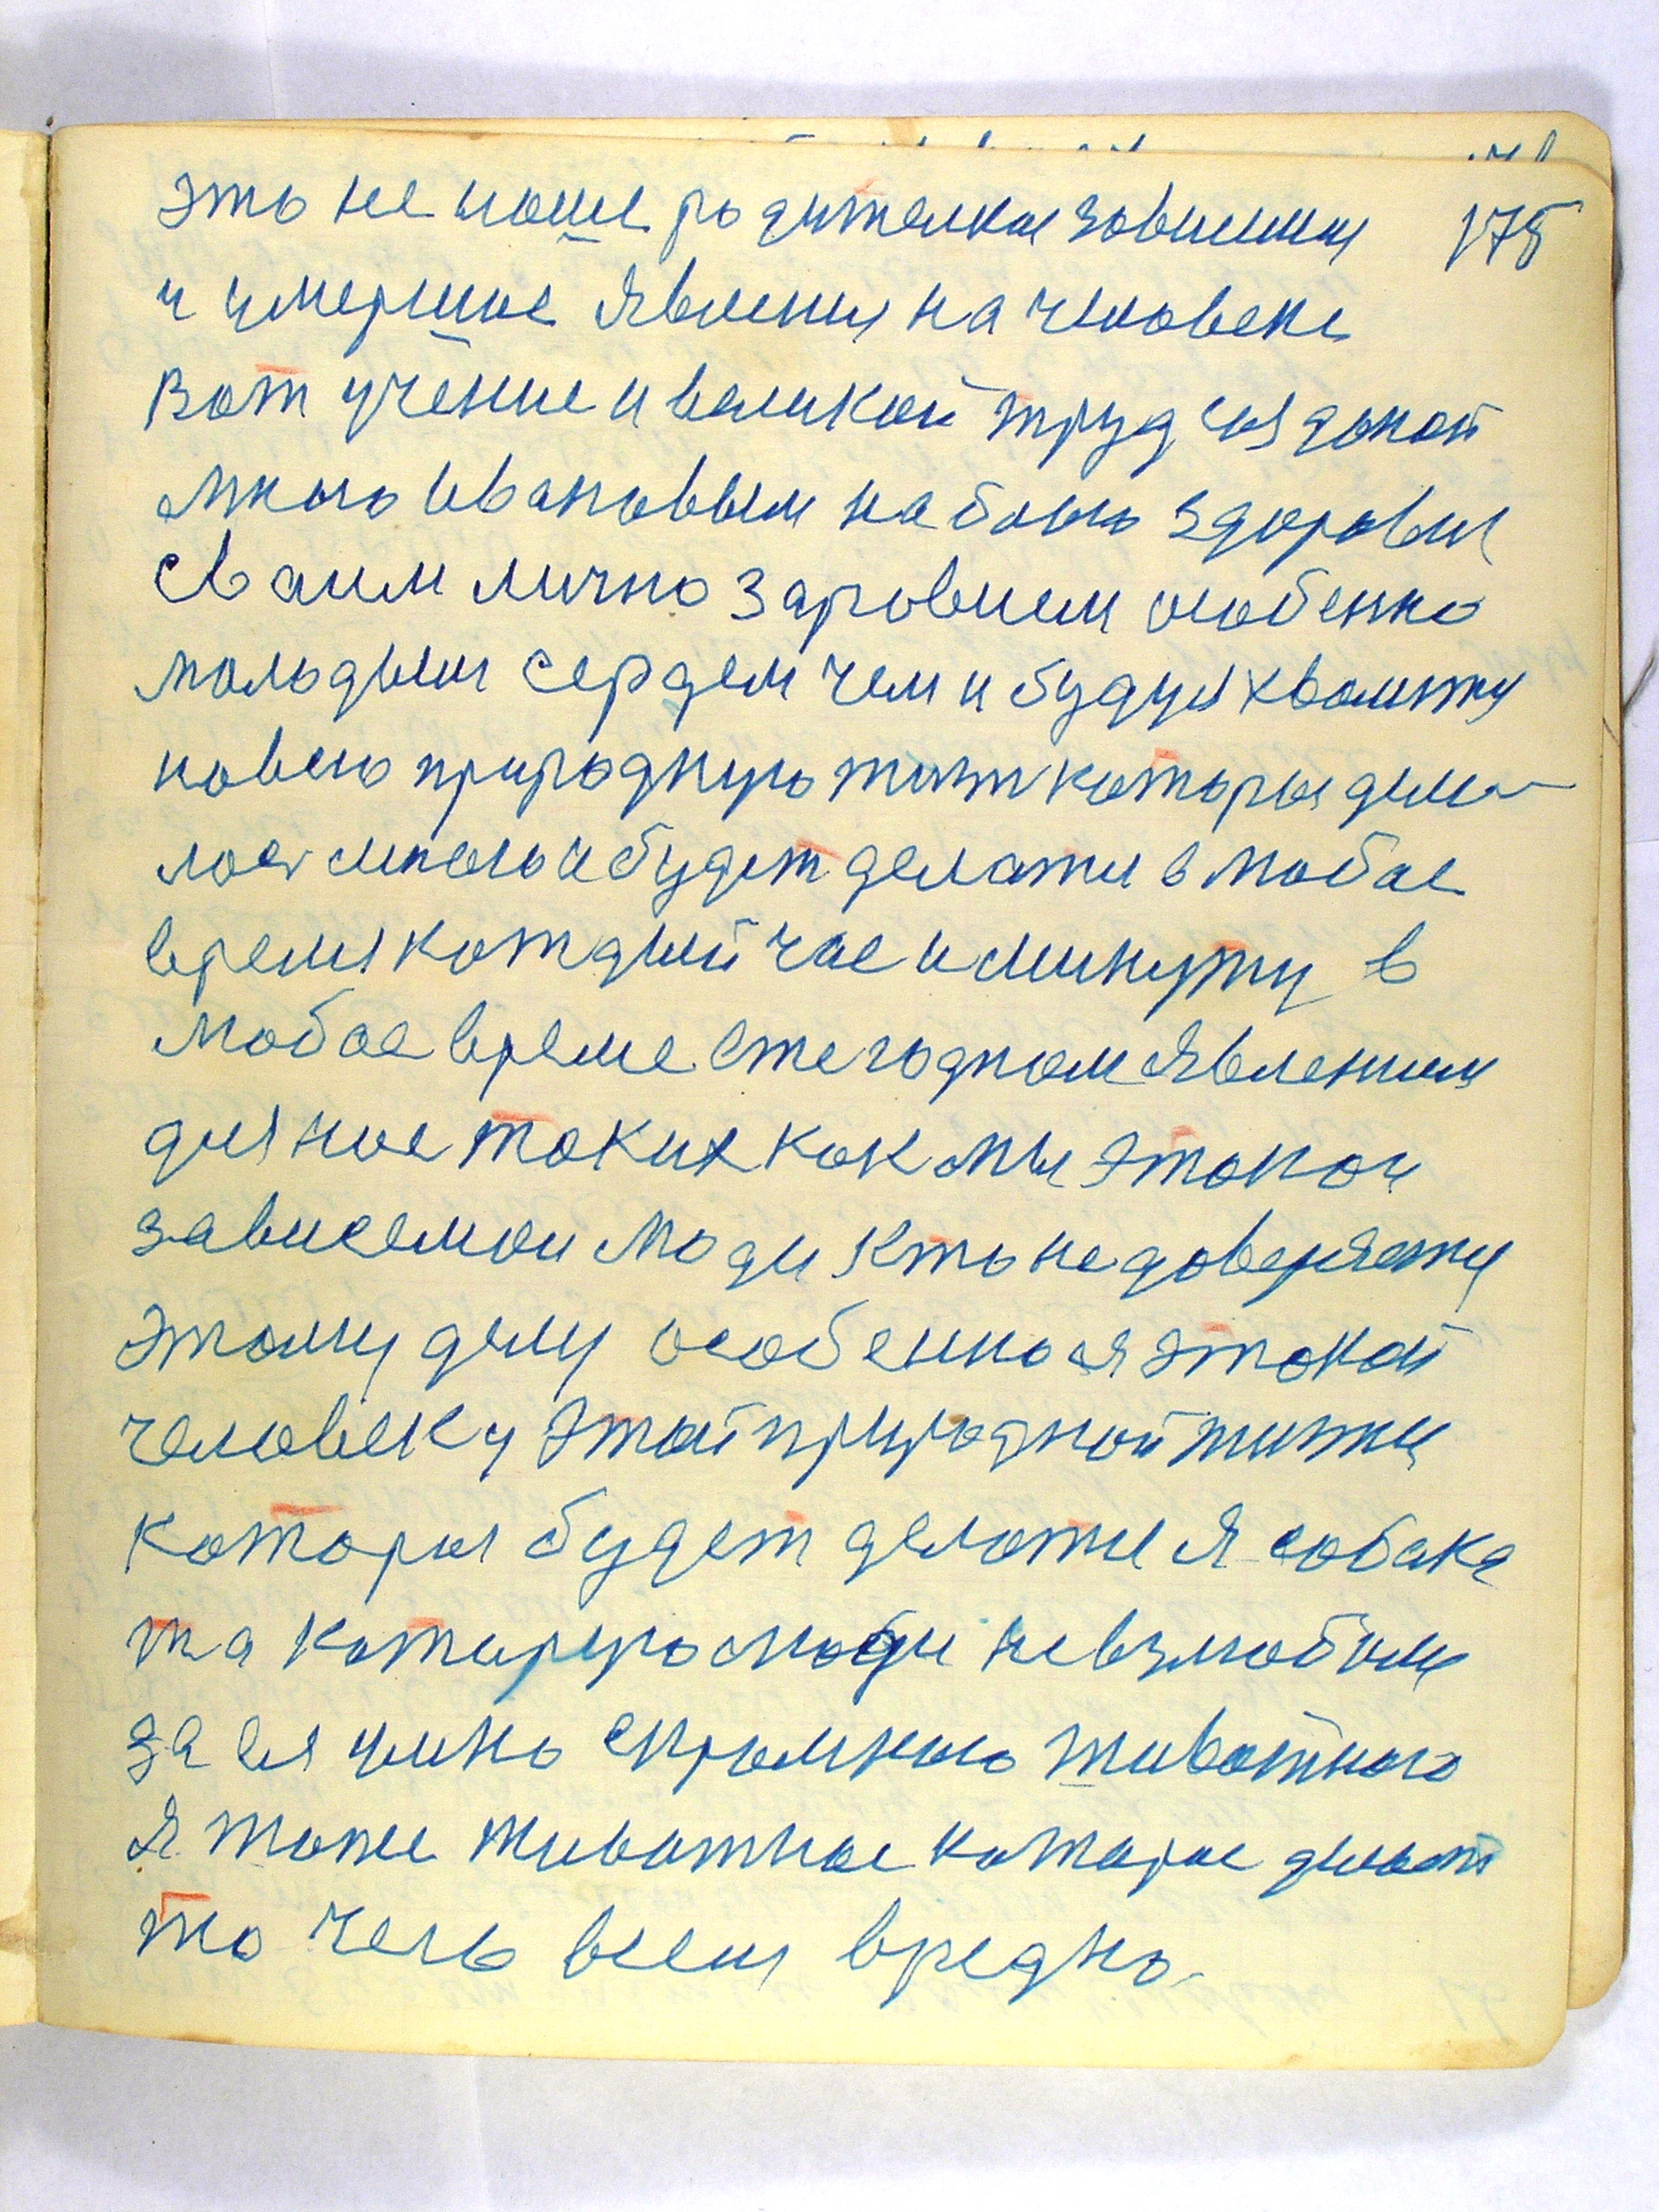 175
это не наше родителкае зовиши
и умершие явления на человеке
Вот учение и великои труд сизданой
мною Ивановым на более здоровия
сваим лично зdоровием особенно
молодым сердем чем и будуи хвалитя
новою природную жизн которыя дела-
лося мною и будет делатие в любое
время котдый час и минуту в
любое време ежегодном явлением
для нас таких как мы этакои
зависемои люди кто не доверяетя
этому делу особенно я этакой
человек у этой природной жизни
которыя будет делотие я собака
та которую люди невзлюбили
за ея умно скромного животного
я тоже животное которое делает
то чего всем вредно.